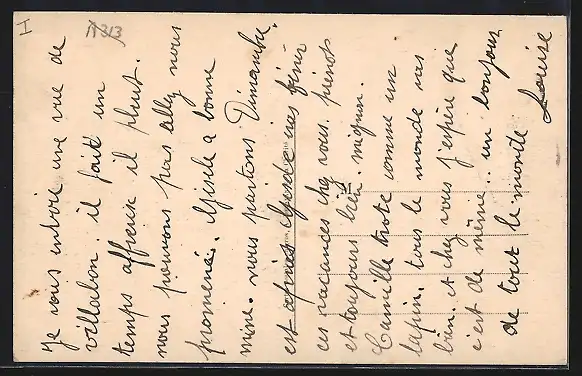 I
11313
Je vous envoie une vue de
villalon. il fait un
temps affreux il pleut.
nous pouvons pas allez nous
promené. Gisele a bonne
mine. nous partons Dimanche.
est apres Gisele vas finir
ces vacances chez vous. pierrot
et toujours bien mignon.
Camille trote comme un
lapin. tous le monde vas
bien. et chez vous j'espère que
c'est de même.. un bonjour
de tout le monde
Louise